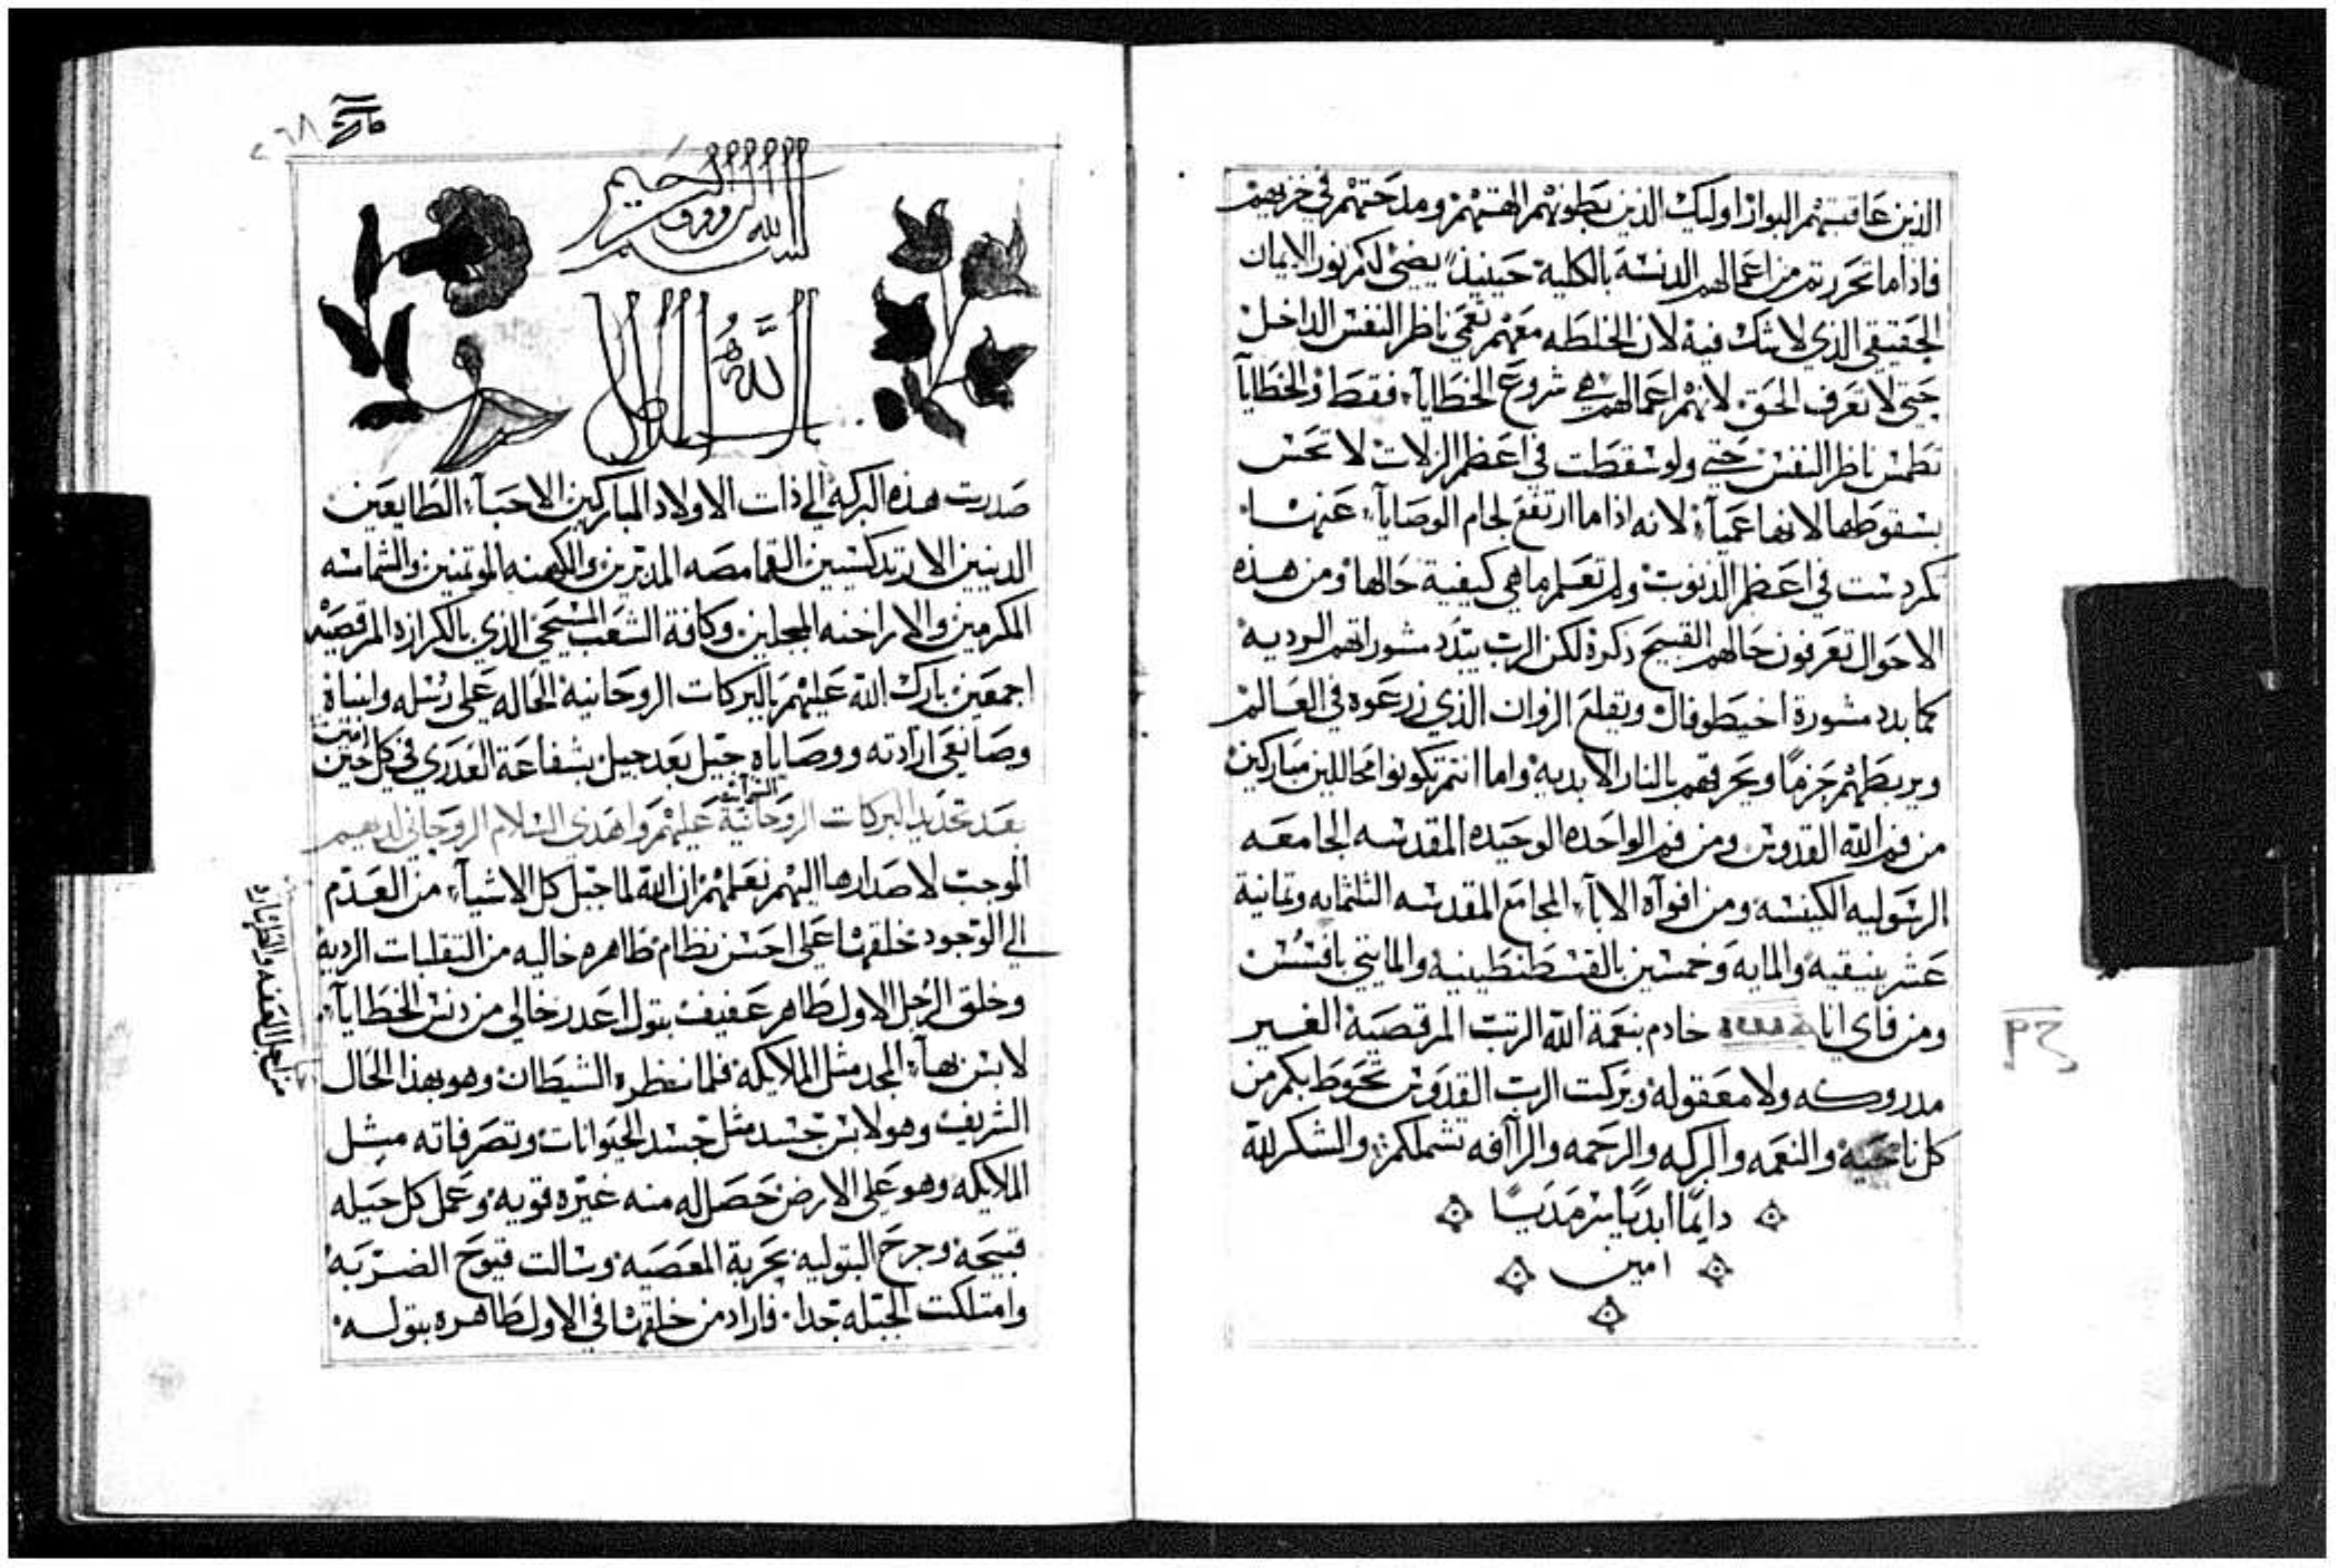 الذين عاقبتهم البوار اوليك الذين بطونهم الهتهم ومدحتهم في خزيهم
فاذا ما تحررتم من اعمالهم الدنسة بالكلية حينيذ يضي لكم نور الايمان
الحقيقي الذي لا شك فية لان الخلطه معهم تعمي ناظر النفس الداخل
حتي لا تعرف الحق لانهم اعمالهم هي شروع الخطايآ فقط والخطايآ
تطمس ناظر النفس حتي ولو سقطت في اعظم الزلات لا تحس
بسقوطها لانها عميآ لانه اذا ما ارتفع لجام الوصايآ عنها
كردست في اعظم الدنوب ولم تعلم ما هي كيفية حالها ومن هذه
الاحوال تعرفون حالهم القبيح ذكرة لكن الرب يبدد مشوراتهم الرديه
كما بدد مشورة اخيطوفال ويقلع الزوان الذي زرعوه في العالم
ويربطهم حزمًا ويحرقهم بالنار الابديه واما انتم تكونوا محاللين مباركين
من فم الله القدوس ومن فم الواحده الوحيده المقدسه الجامعه
الرسوليه الكنيسه ومن افواه الابآ المجامع المقدسه الثلثمايه وثمانية
عشر بنيقيه والمايه وخمسين بالقسطنطينيه والمايتي بافسس
ومن فاي انا خادم بنعمة الله الرتب المرقصية الغير
مدروكه ولا معقوله وبركت الرب القدوس تحوط بكم من
كل ناحيه والنعمه والبركه والرحمه والرآفه تشملكم والشكر لله
دايمًا ابديًا سرمديًا
امين
بسم الله الرووف الرحيم
صدرت هذه البركه الي ذات الاولاد المباركين الاحبآ الطايعين
الدينين الارتدكسيين القمامصه المدبرين والكهنه الموتمنين والشمامسه
المكرمين والاراخنه المبجلين وكافة الشعب المسيحي الذي بالكرازة المرقصيه
اجمعين بارك الله عليهم بالبركات الروحانية الحاله علي رسله وانبياة
وصانعي ارادته ووصاياه جيل بعد جيل بشفاعة العدري في كل حين امين
بعد تجديد البركات الروحانية عليهم واهدي السلام الروحاني لديهم
الموجب لاصدارها اليهم نعلمهم ان الله لما جبل كل الاشيآ من العدم
الي الوجود خلقها علي احسن نظام ظاهره خاليه من التقلبات الرديه
وخلق الرجل الاول طاهر عفيف بتول اعدر خالي من دنس الخطايآ
لابس بهآ المجد مثل الملايكه فلما نظره الشيطان وهو بهذا الحال
الشريف وهو لابس جسد مثل جسد الحيوانات وتصرفاته مثل
الملايكه وهو علي الارض حصل له منه غيره قويه وعمل كل حيله
قبيحة وجرح البتوليه بحربة المعصيه وسالت قيوح الضربه
وامتلكت الجبله جدا فاراد من خلقها في الاول طاهره بتوله